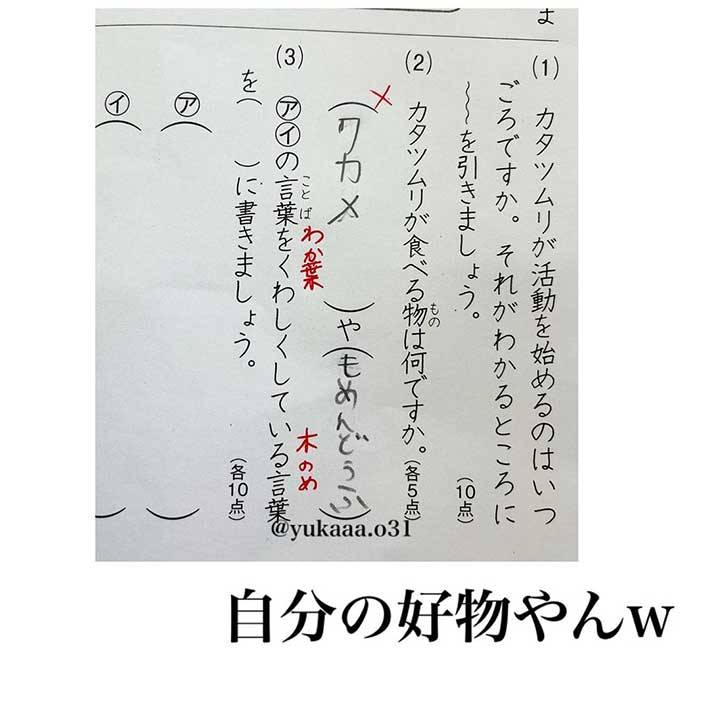 ま
(1) カタツムリが活動を始めるのはいつ
ごろですか。それがわかるところに
〜〜を引きましょう。
(10点)
(2) カタツムリが食べる物は何ですか。(各5点)
もの
×
(ワカメ)や(もめんどうふ)
わか葉
木のめ
(3) ㋐㋑の言葉をくわしくしている言葉
ことば
を( )に書きましょう。
(各10点)
㋐( )
㋑( )
@yukaaa.o31
自分の好物やんw